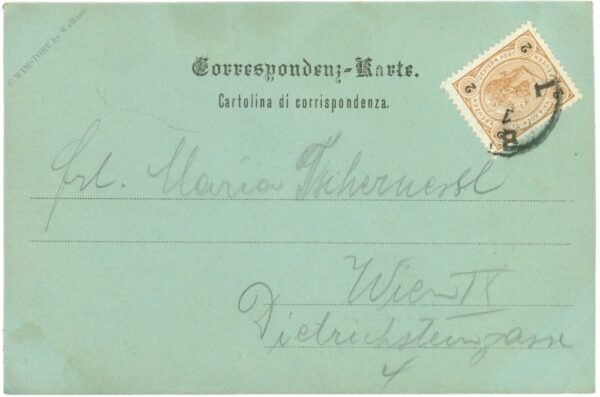 © WIMSTORE by Walkone
Correspondenz-Karte.
Cartolina di corrispondenza.
Frl. Maria Tschernessl
Wien IX
Dietrichsteingasse
4
2
2
1